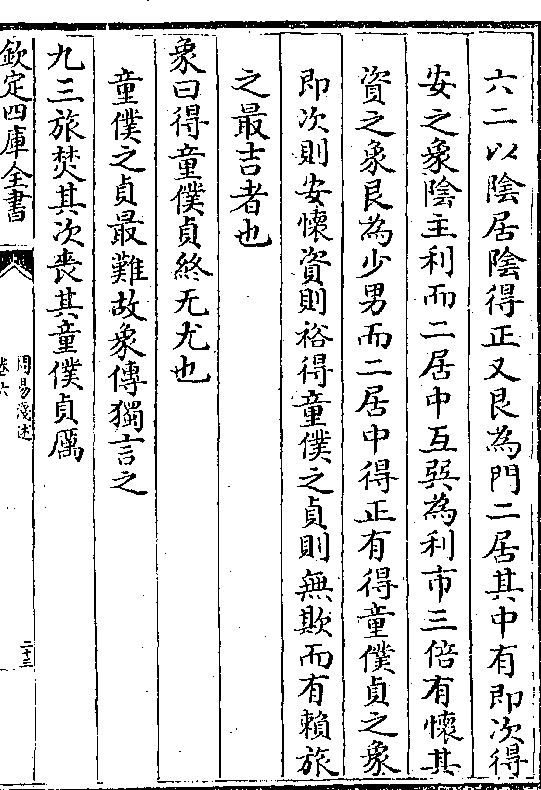 六二以陰居陰得正又艮為門二居其中有即次得
安之象陰主利而二居中互巽為利市三倍有懷其
資之象艮為少男而二居中得正有得童僕貞之象
即次則安懷資則裕得童僕之貞則無欺而有賴旅
之最吉者也
象曰得童僕貞終无尤也
童僕之貞最難故象傳獨言之
九三旅焚其次喪其童僕貞厲
欽定四庫全書
周易淺述
卷六
二十三